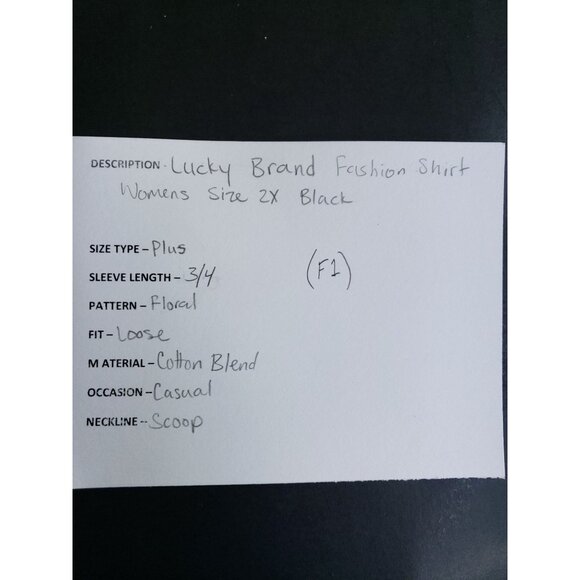 DESCRIPTION - Lucky Brand Fashion Shirt
Womens Size 2X Black
SIZE TYPE – Plus
SLEEVE LENGTH – 3/4
(F1)
PATTERN – Floral
FIT – Loose
MATERIAL – Cotton Blend
OCCASION – Casual
NECKLINE -- Scoop